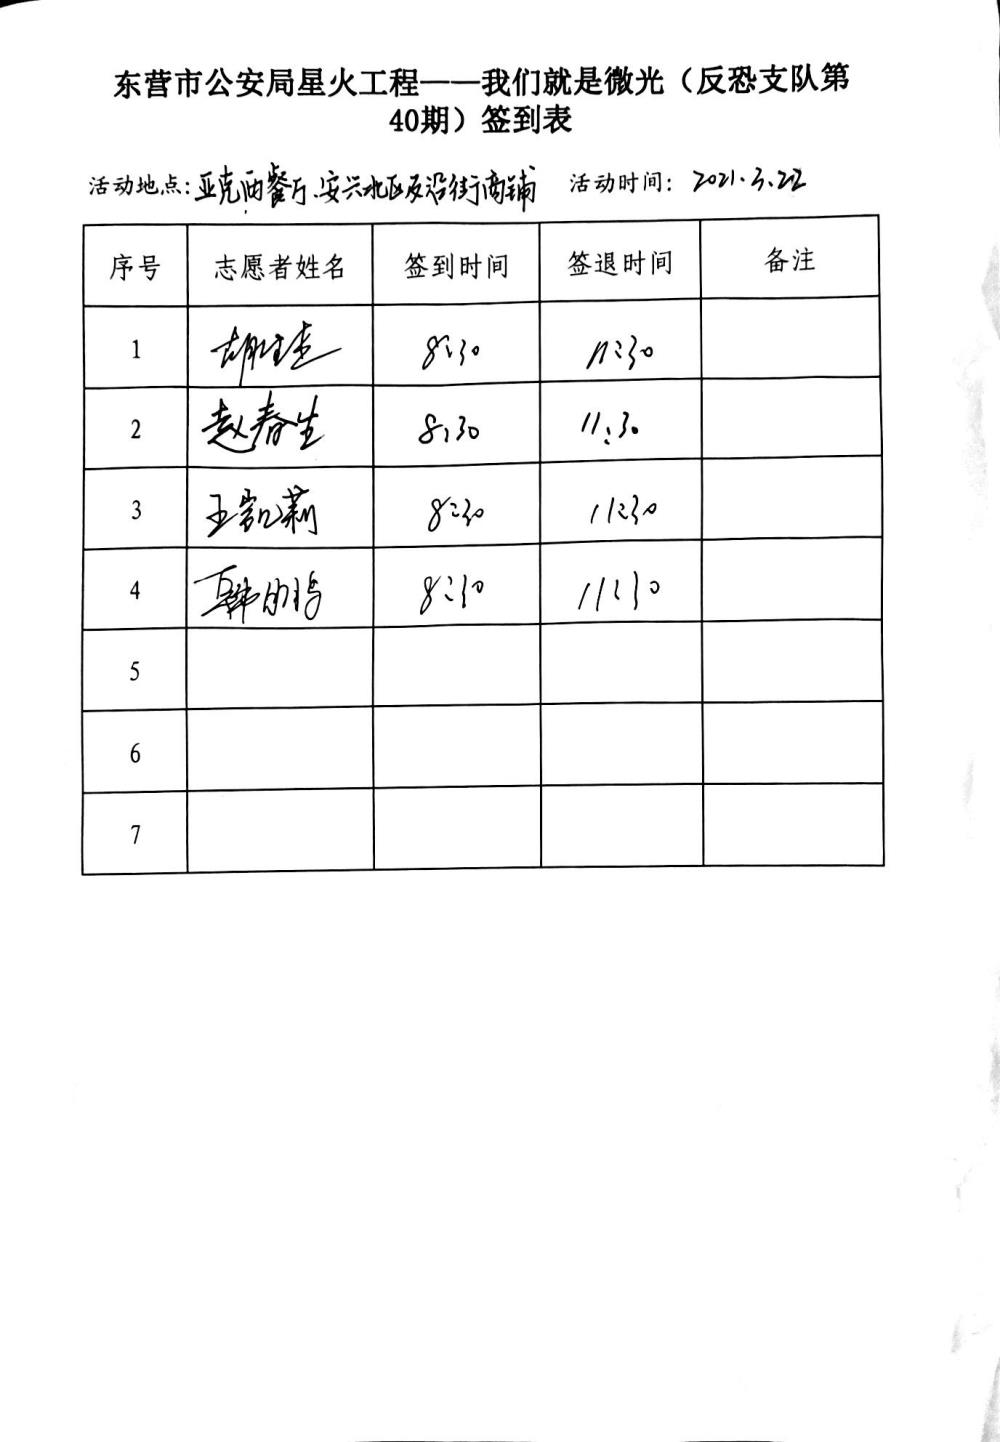 东营市公安局星火工程——我们就是微光（反恐支队第
40期）签到表
活动地点：亚克西餐厅、安兴北区及沿街商铺 活动时间：2021.3.22
序号 志愿者姓名 签到时间 签退时间 备注
1 8:30 11:30
2 赵春生 8:30 11:30
3 王凯莉 8:30 11:30
4 韩 8:30 11:30
5
6
7